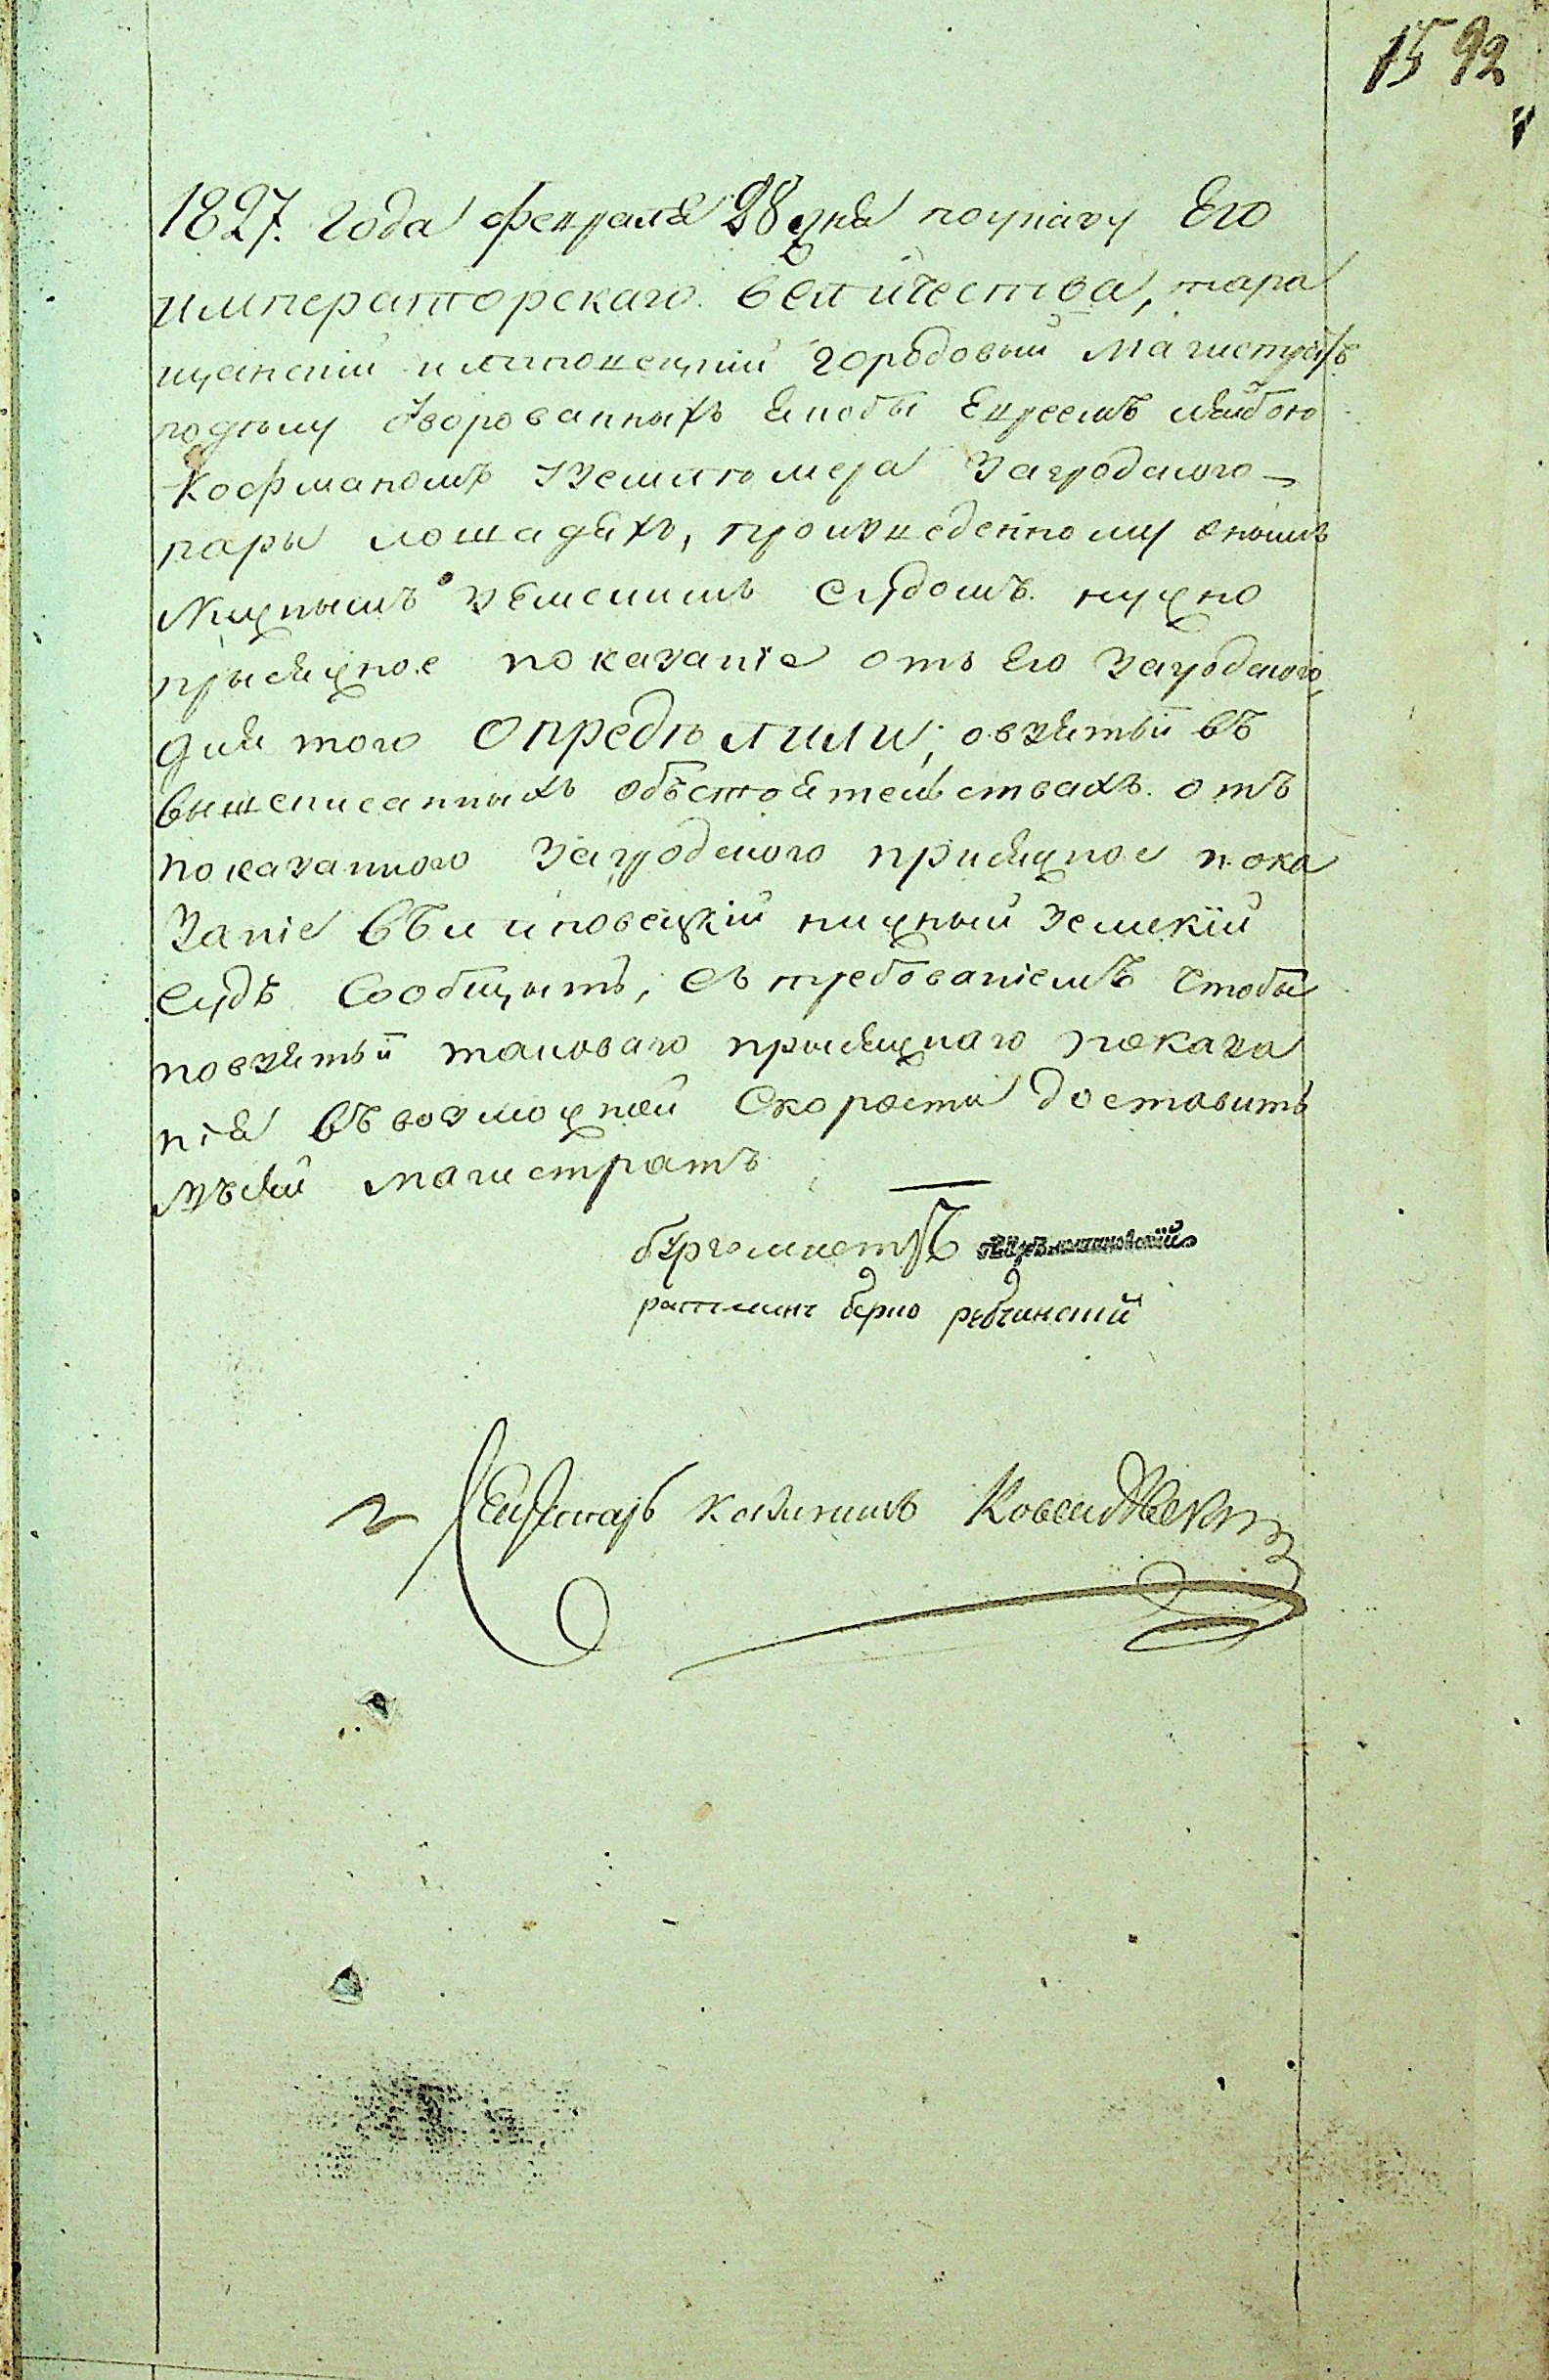 15 92
1827. года февраля 28 дня поуказу Его
императорскаго величества, тара
щанскій илиповецкій городовый Магистратъ
поделу Уворованныхъ якобы Евреемъ лейбою
Кофманомъ Уземлемера Загродского
пары лошадяхъ, произведенному онымъ
Нижнымъ земскимъ судомъ нужно
присяжное показаніе отъ Его Загродского
для того определили; овзятьи въ
вышеписанныхъ обьстоятельствахъ отъ
показанного Загродского присяжное пока
заніе въ липовецкій нижный Земскій
судъ Сообщыть, съ требованіемъ чтобы
повзятьи таковаго присяжнаго показа
нія въвозможной Скорости доставить
въсей магистратъ
бургомистръ
ратманъ берко
Секретарь